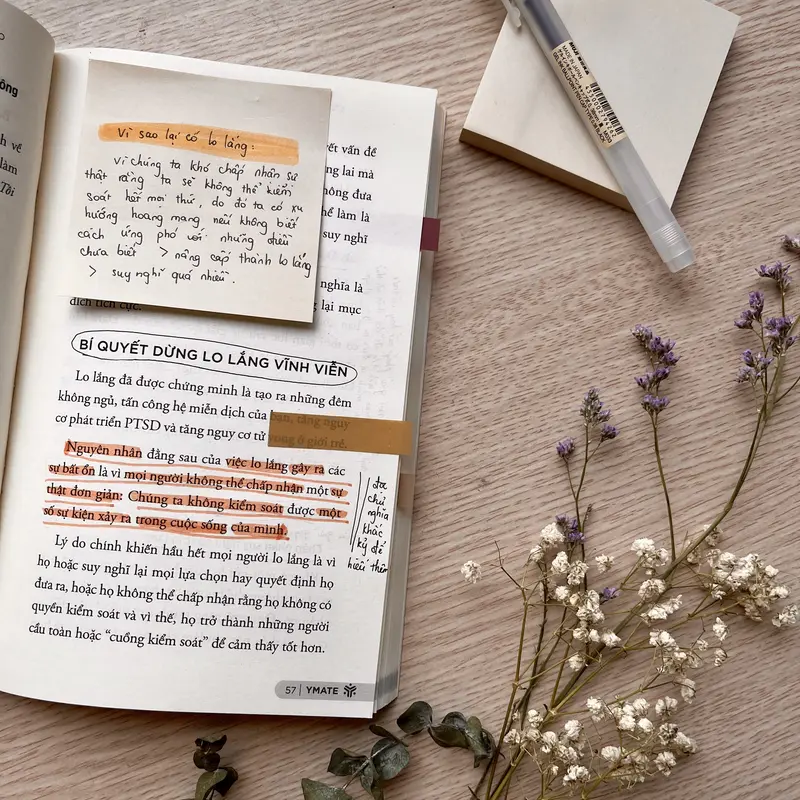 ông
h về
làm
Tôi
Vì sao lại có lo lắng:
vì chúng ta khó chấp nhận sự
thật rằng ta sẽ không thể kiểm
soát hết mọi thứ, do đó ta có xu
hướng hoang mang nếu không biết
cách ứng phó với những điều
chưa biết > nâng cấp thành lo lắng
> suy nghĩ quá nhiều.
yết vấn đề
ng lai mà
hông đưa
hể làm là
suy nghĩ
nghĩa là
lại mục
đích tích cực.
BÍ QUYẾT DỪNG LO LẮNG VĨNH VIỄN
Lo lắng đã được chứng minh là tạo ra những đêm
không ngủ, tấn công hệ miễn dịch của bạn, tăng nguy
cơ phát triển PTSD và tăng nguy cơ tử vong ở giới trẻ.
Nguyên nhân đằng sau của việc lo lắng gây ra các
sự bất ổn là vì mọi người không thể chấp nhận một sự
thật đơn giản: Chúng ta không kiểm soát được một
số sự kiện xảy ra trong cuộc sống của mình.
đọc
chủ
nghĩa
khắc
kỷ để
hiểu thêm
Lý do chính khiến hầu hết mọi người lo lắng là vì
họ hoặc suy nghĩ lại mọi lựa chọn hay quyết định họ
đưa ra, hoặc họ không thể chấp nhận rằng họ không có
quyền kiểm soát và vì thế, họ trở thành những người
cầu toàn hoặc “cuồng kiểm soát” để cảm thấy tốt hơn.
57 | YMATE
MADE IN JAPAN